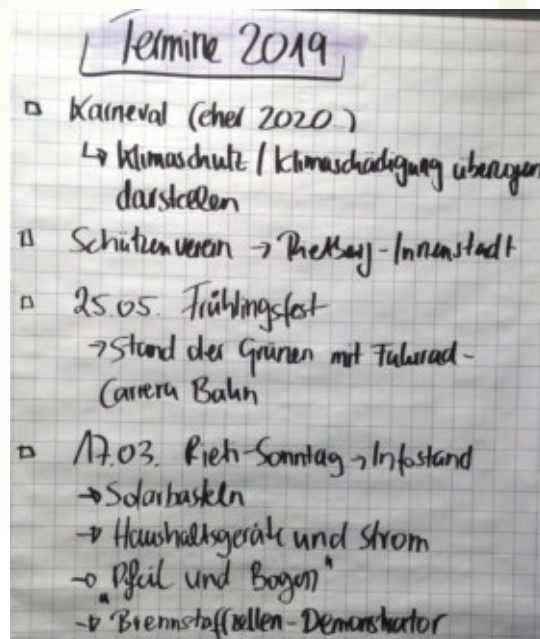 Termine 2019
Karneval (eher 2020)
↳ Klimaschutz / Klimaschädigung überzogen
darstellen
Schützenverein → Rietberg-Innenstadt
25.05. Frühlingsfest
→ Stand der Grünen mit Fahrrad-
Carrera Bahn
17.03. Rieti-Sonntag → Infostand
→ Solarbasteln
→ Haushaltsgeräte und Strom
→ "Pfeil und Bogen"
→ Brennstoffzellen-Demonstrator